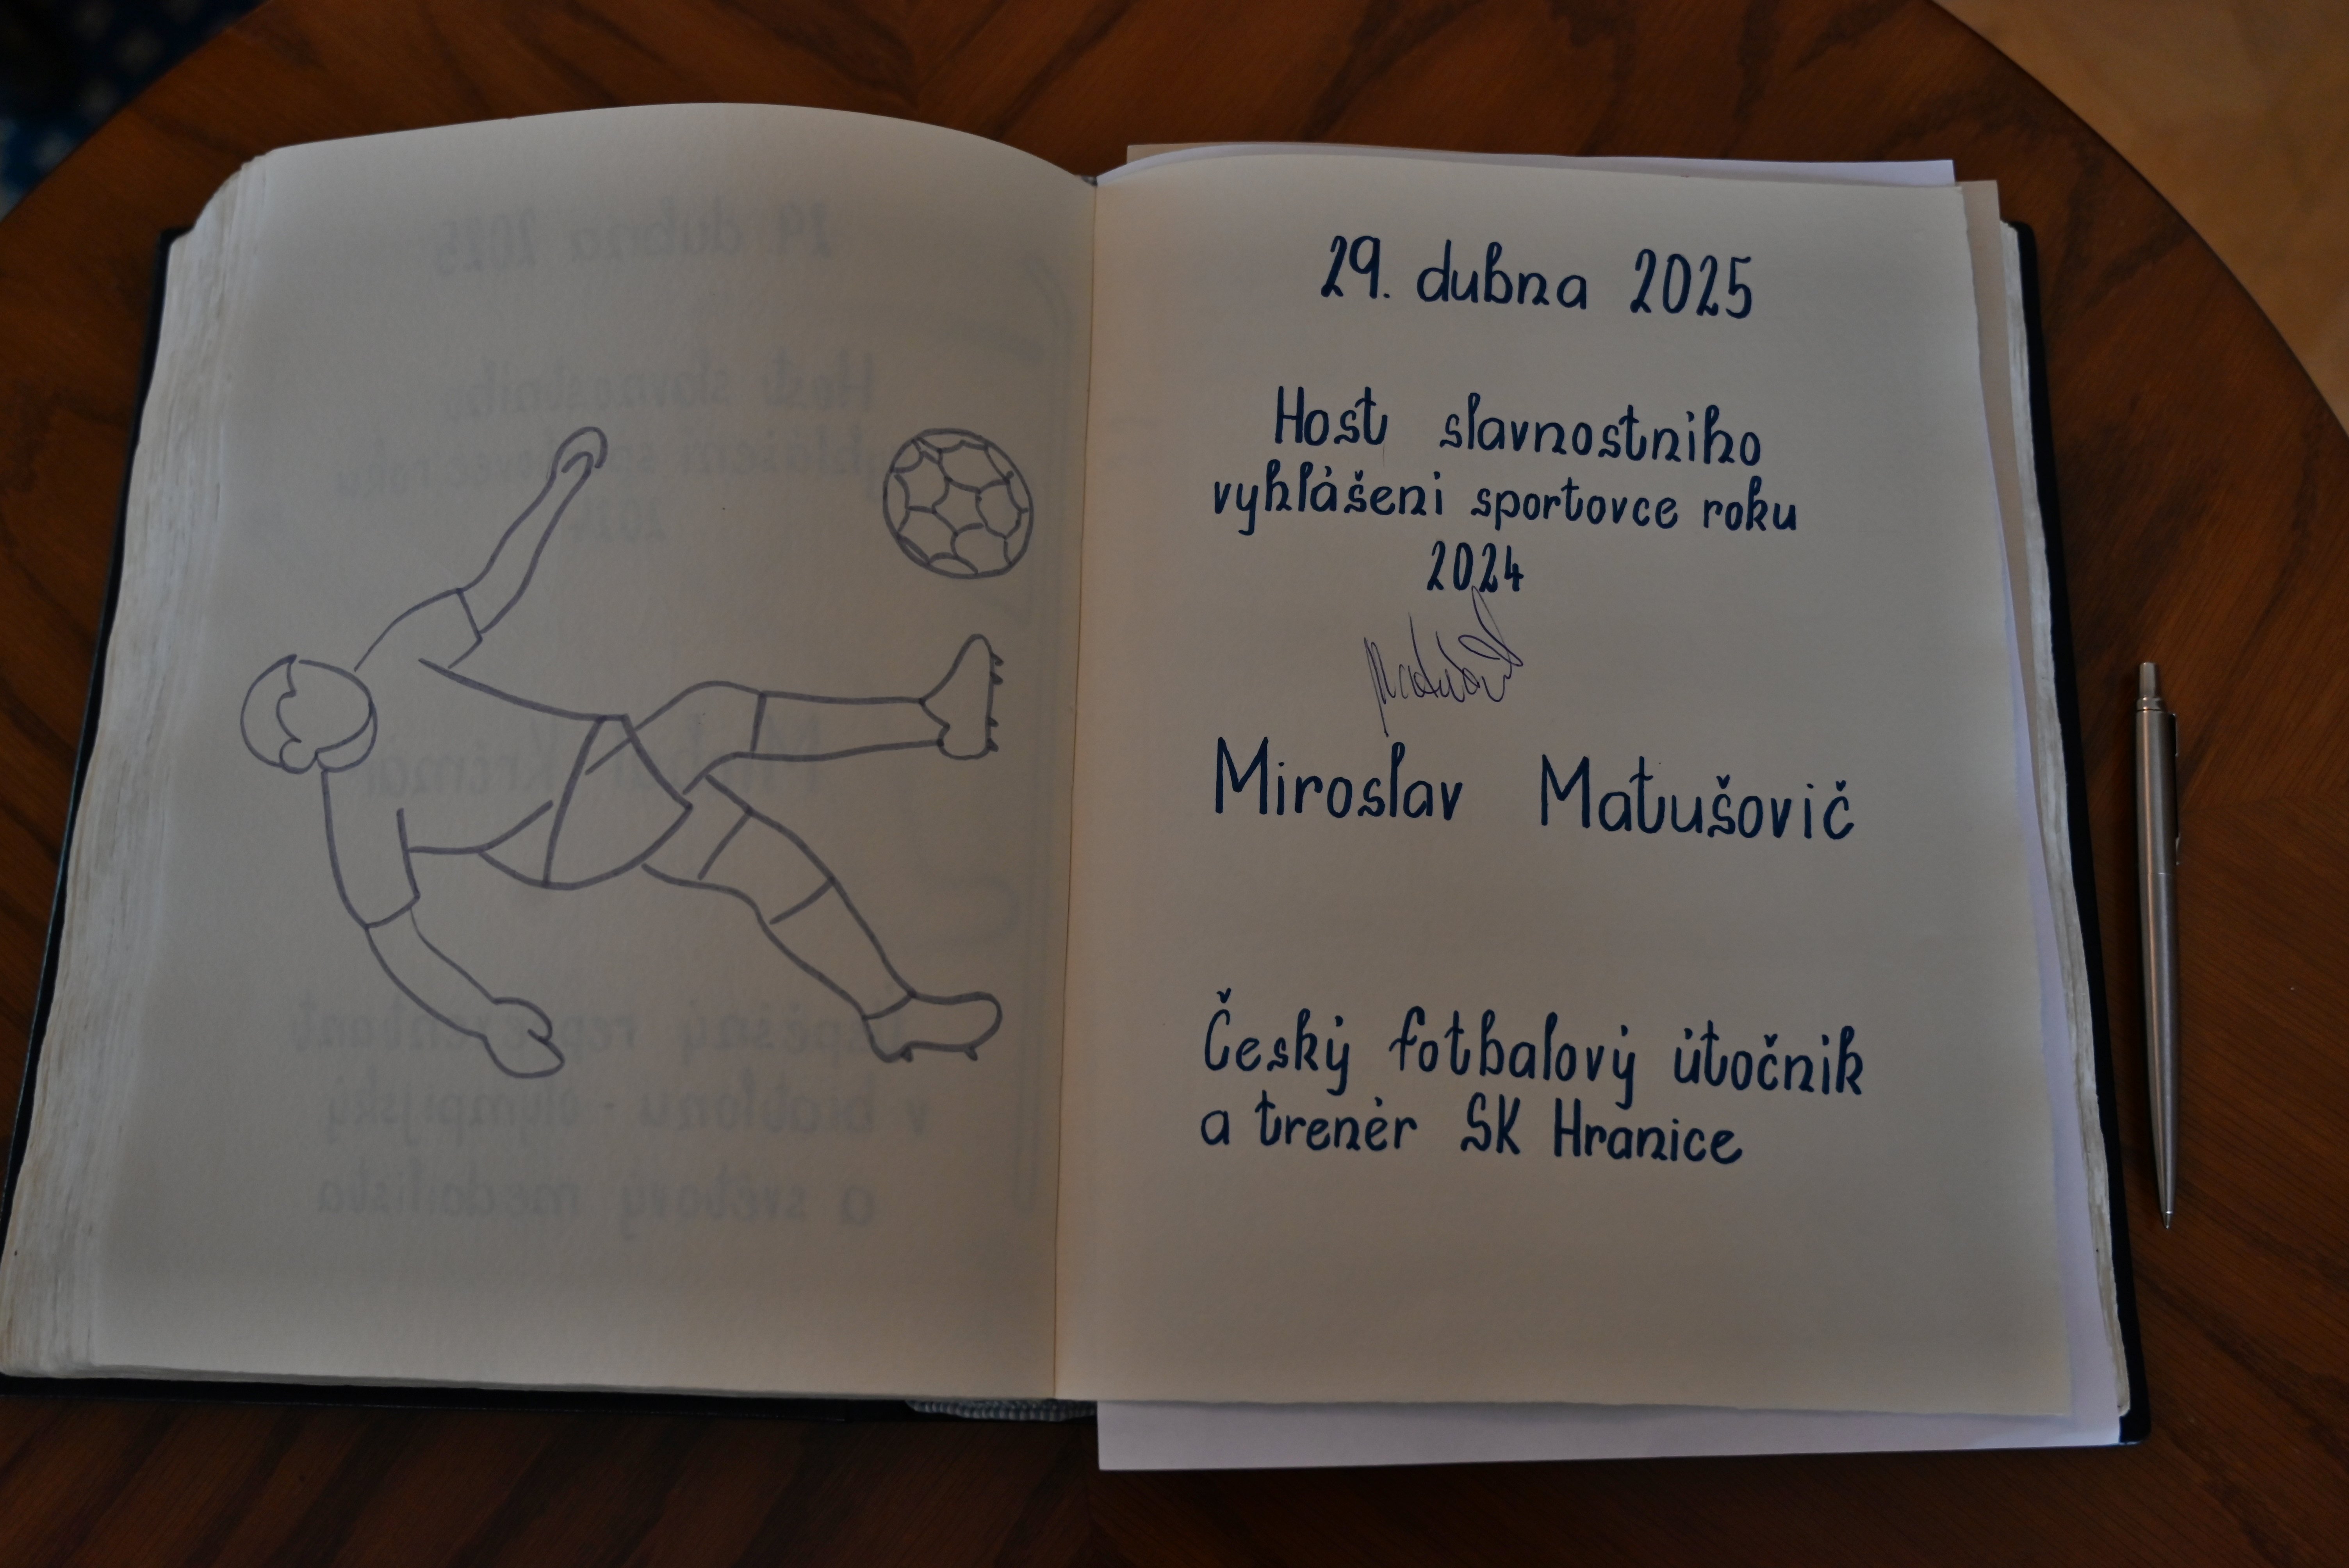 29. dubna 2025
Host slavnostního
vyhlášení sportovce roku
2024
Miroslav Matušovič
Český fotbalový útočník
a trenér SK Hranice